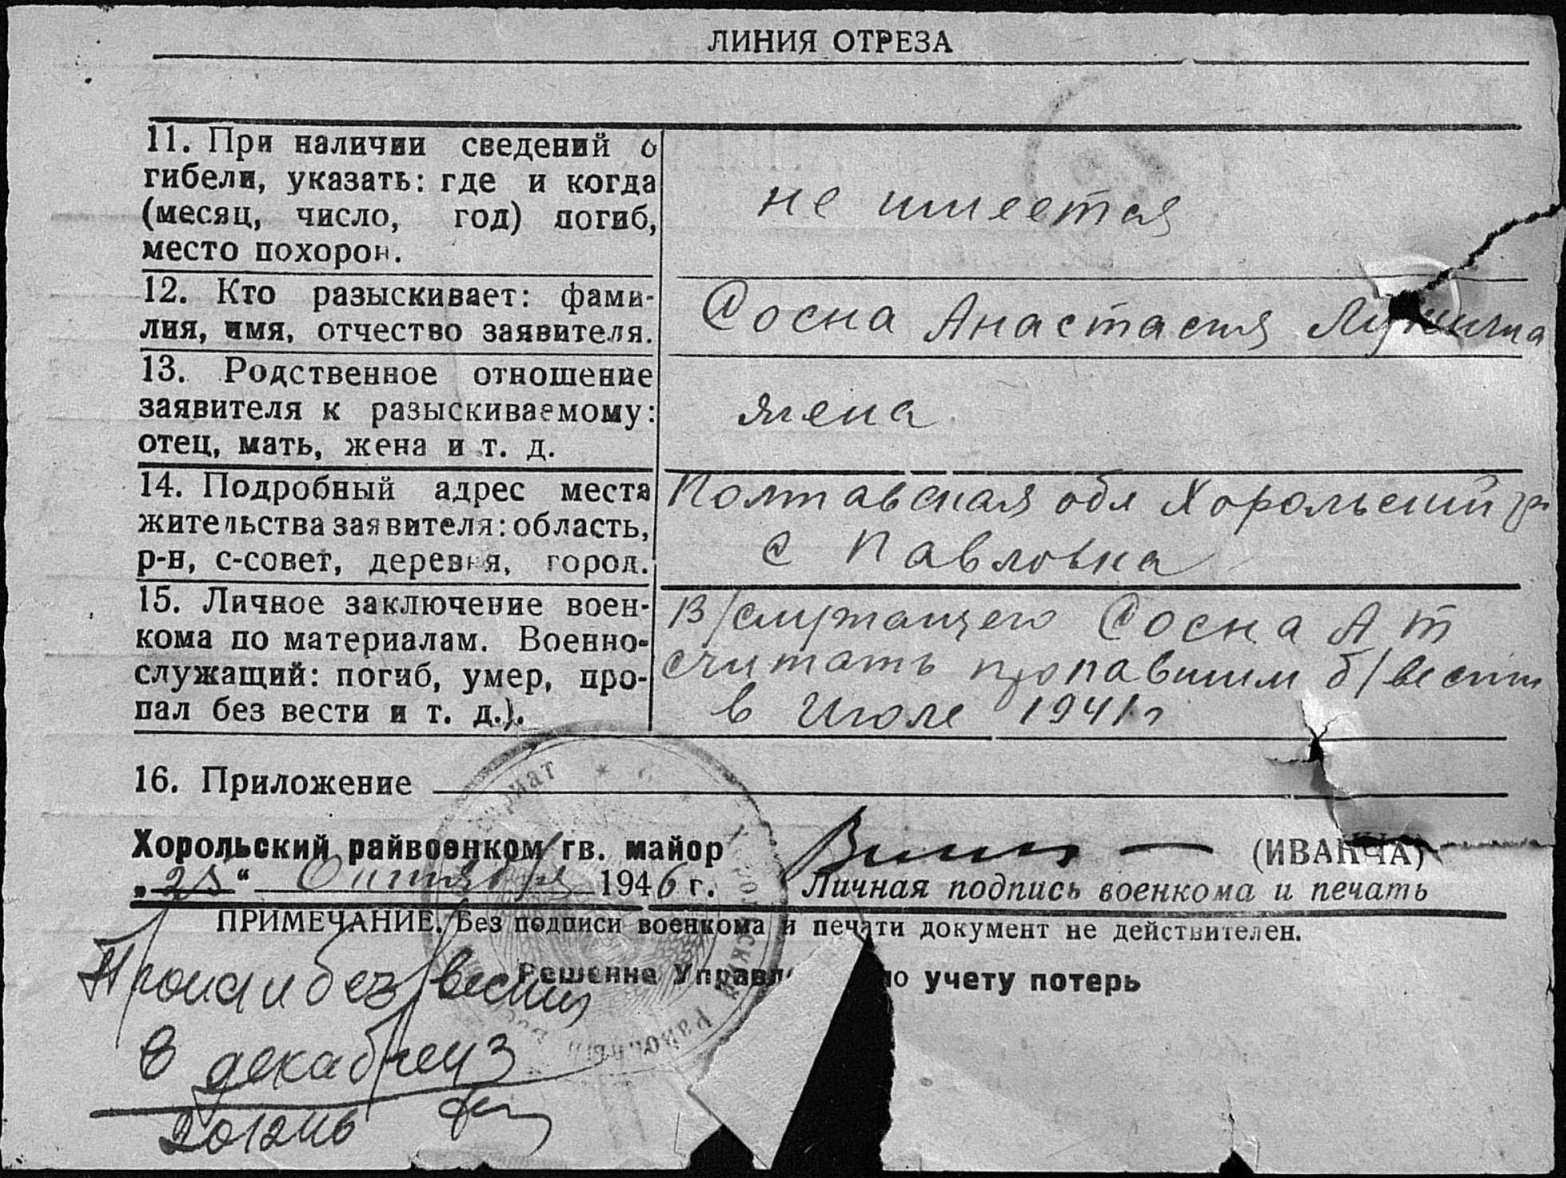 ЛИНИЯ ОТРЕЗА
11. При наличии сведений о
гибели, указать: где и когда
(месяц, число, год) погиб,
место похорон.
не имеется
12. Кто разыскивает: фами-
лия, имя, отчество заявителя.
Сосна Анастасия
13. Родственное отношение
заявителя к разыскиваемому:
отец, мать, жена и т. д.
жена
14. Подробный адрес места
жительства заявителя: область,
р-н, с-совет, деревня, город.
Полтавская обл Хорольский р-н
с Павловка
15. Личное заключение воен-
кома по материалам. Военно-
служащий: погиб, умер, про-
пал без вести и т. д.).
В/служащего Сосна А Т
считать пропавшим б/вести
в Июле 1941 г
16. Приложение
Хорольский райвоенком гв. майор (ИВАНЧА)
„25“ Октября 1946 г. Личная подпись военкома и печать
ПРИМЕЧАНИЕ. Без подписи военкома и печати документ не действителен.
Решение по учету потерь
Пропал без вести
в декабре 43